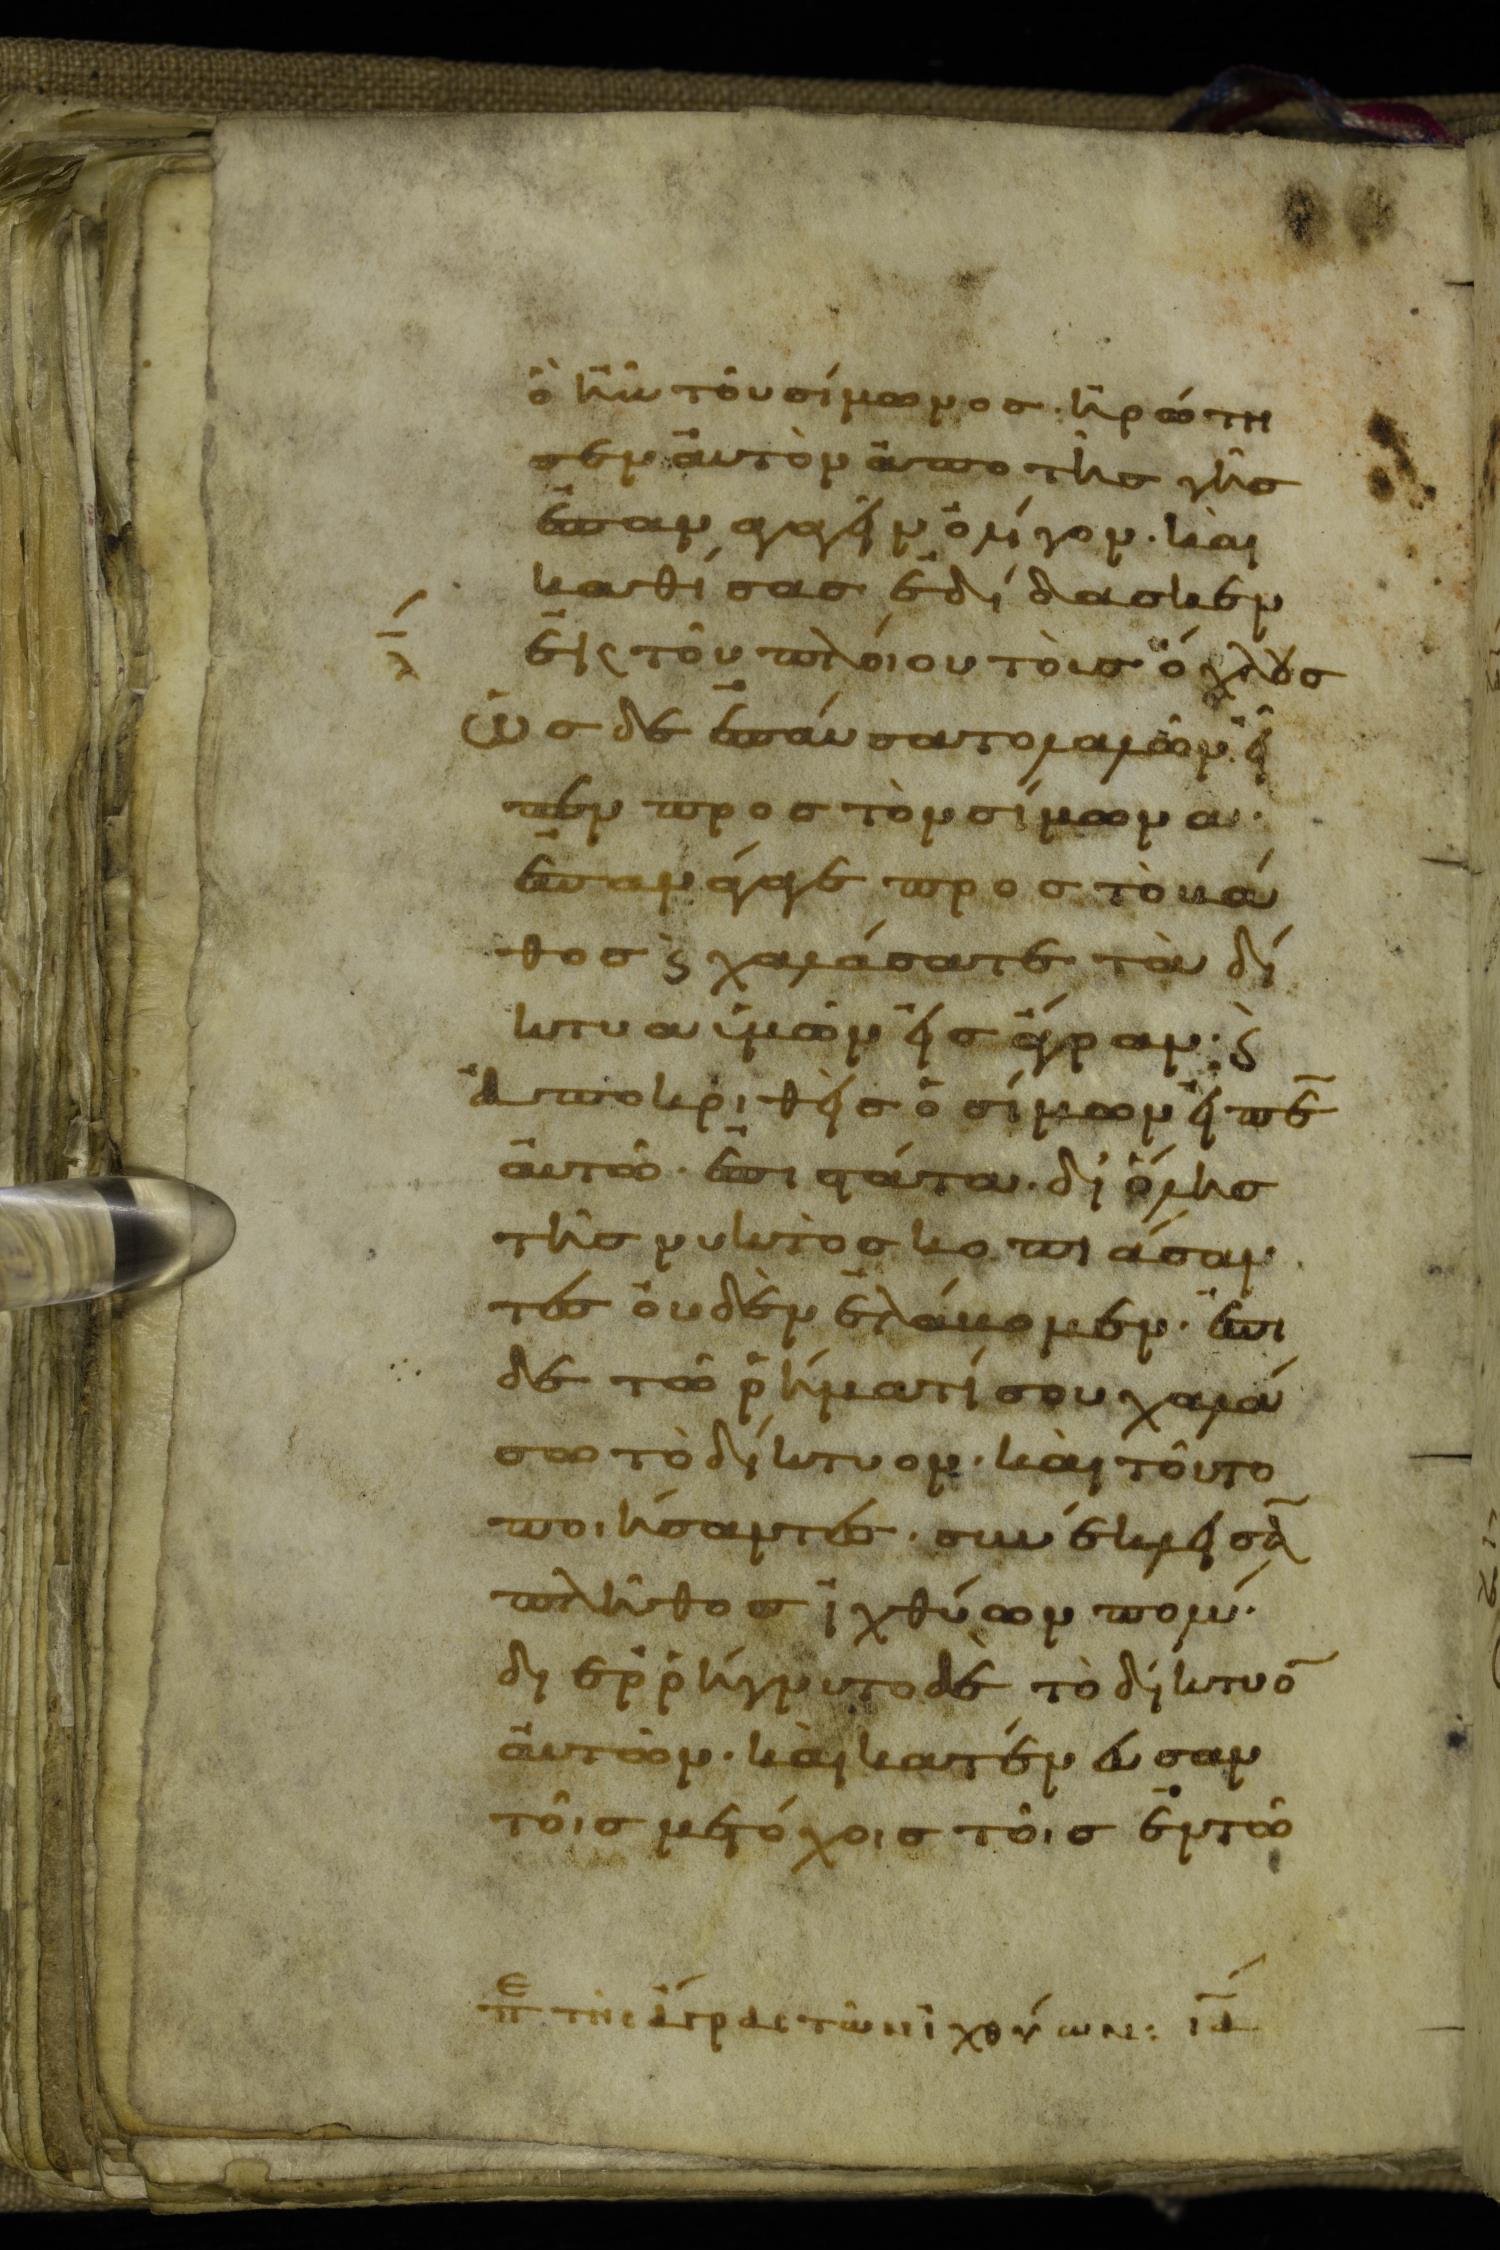 ὃ ἦν τοῦ σίμωνος. ἠρώτη
σεν ἀυτὸν ἀπο τῆς γῆς
ἐπαναγαγεῖν ὀλίγον. καὶ
καθίσας ἐδίδασκεν
ἐκ τοῦ πλοίου τοὺς ὄχλους
λ
Ὡς δὲ ἐπάυσατο λαλῶν. εἶ
πεν προς τὸν σίμωνα.
ἐπανάγαγε προς τὸ βά
θος ϗ χαλάσατε τὰ δί
κτυα ὑμῶν εἰς ἄγραν. ϗ
Ἀποκριθεὶς ὁ σίμων εἶπε̄
ἀυτῶ. ἐπιστάτα. δι ὅλης
τῆς νυκτὸς κοπιάσαν
τες ὀυδὲν ἐλάβομεν. ἐπι
δὲ τῶ ῥήματί σου χαλά
σω τὸ δίκτυον. καὶ τοῦτο
ποιήσαντες. συνέκλεισᾱ
πλῆθος ἰχθύων πολύ.
διερρήγνυτο δὲ τὸ δίκτυο̄
ἀυτῶν. καὶ κατένευσαν
τοῖς μετόχοις τοῖς ἐν τῶ
πε τῆς ἄγρας τῶν ἰχθύων: ιδ